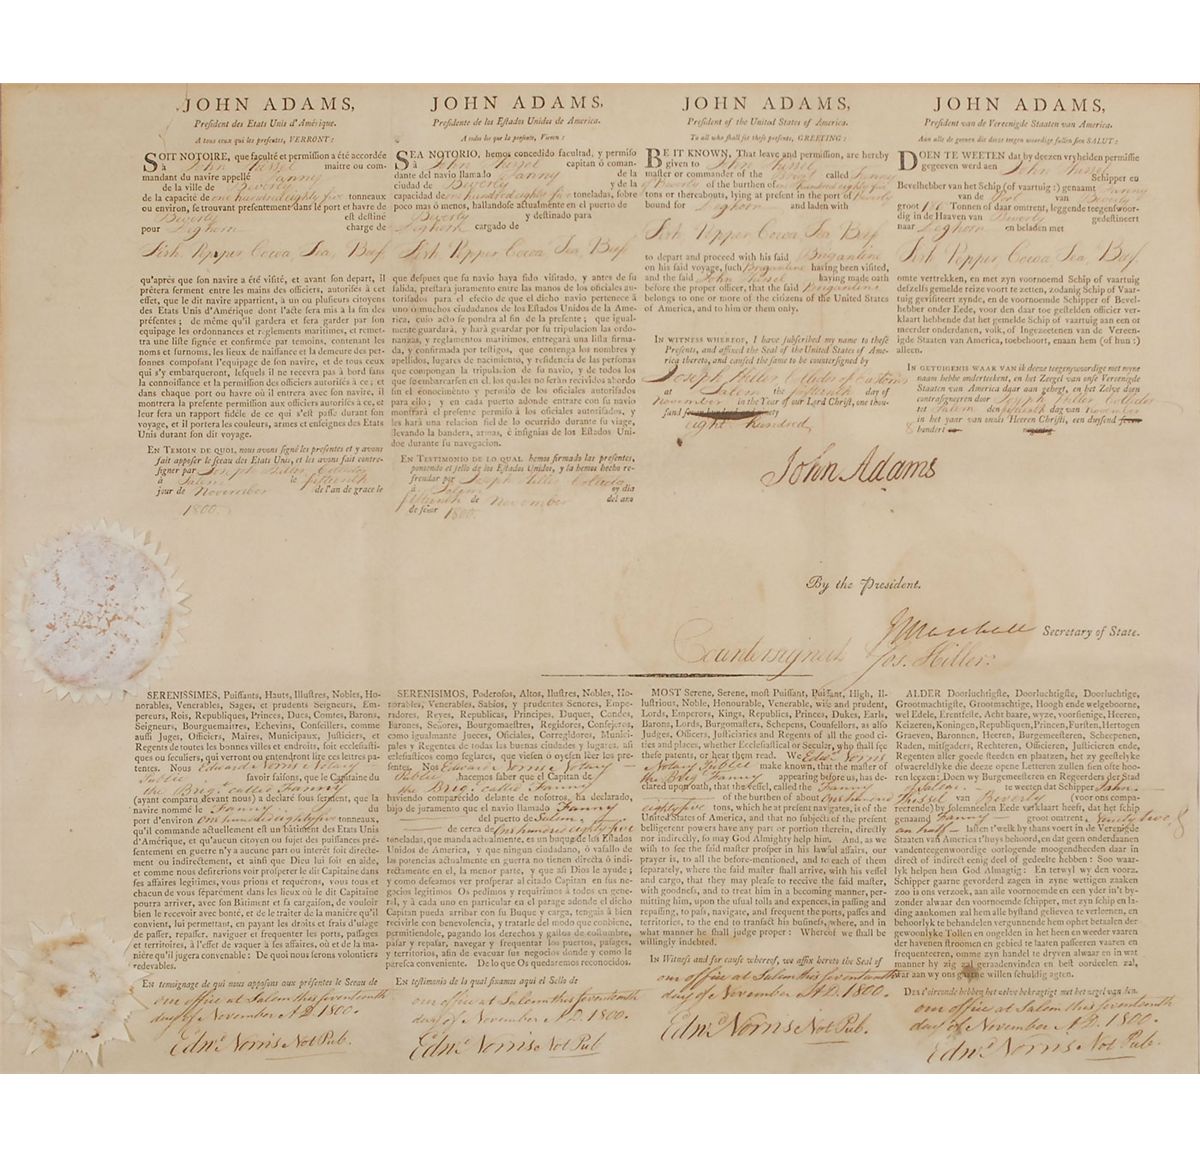 JOHN ADAMS,
Preſident des Etats Unis d'Amérique.
A tous ceux qui les preſentes, VERRONT:
SOIT NOTOIRE, que faculté et permiſſion a été accordée
à John Hussel maitre ou com-
mandant du navire appellé Fanny
de la ville de Beverly
de la capacité de one hundred eighty five tonneaux
ou environ, ſe trouvant preſentement dans le port et havre de
Beverly eſt deſtiné
pour Leghorn charge de
Fish Pepper Cocoa Tea, Beef
qu'après que ſon navire a été viſité, et avant ſon depart, il
prêtera ferment entre les mains des officiers, autoriſés à cet
effet, que le dit navire appartient, à un ou pluſieurs citoyens
des Etats Unis d'Amérique dont l'acte ſera mis à la fin des
préſentes; de même qu'il gardera et ſera garder par ſon
equipage les ordonnances et règlements maritimes, et remet-
tra une liſte ſignée et confirmée par temoins, contenant les
noms et ſurnoms, les lieux de naiſſance et la demeure des per-
ſonnes compoſant l'equipage de ſon navire, et de tous ceux
qui s'y embarqueront, leſquels il ne recevra pas à bord ſans
la connoiſſance et la permiſſion des officiers autoriſés à ce; et
dans chaque port ou havre où il entrera avec ſon navire, il
montrera la preſente permiſſion aux officiers autoriſés à ce, et
leur ſera un rapport fidèle de ce qui s'eſt paſſé durant ſon
voyage, et il portera les couleurs, armes et enſeignes des Etats
Unis durant ſon dit voyage.
EN TEMOIN DE QUOI, nous avons ſigné les preſentes et y avons
fait appoſer le ſceau des Etats Unis, et les avons fait contre-
ſigner par Joseph Hiller Collector
à Salem le fifteenth
jour de November de l'an de grace le
1800.
JOHN ADAMS,
Preſidente de los Eſtados Unidos de America.
A todos los que la preſente, Vieren:
SEA NOTORIO, hemos concedido facultad, y permiſo
à John Hussel capitan ò coman-
dante del navio llamalo Fanny de la
ciudad de Beverly y de la
capacidad de one hundred eighty five toneladas, ſobre
poco mas ò menos, hallandoſe actualmente en el puerto de
Beverly y deſtinado para
Leghorn cargado de
Fish Pepper Cocoa Tea, Beef
que deſpues que ſu navio haya ſido viſitado, y antes de ſu
ſalida, preſtara juramento entre las manos de los oficiales au-
toriſados para el efecto de que el dicho navio pertenece à
uno o muchos ciudadanos de los Eſtados Unidos de la Ame-
rica, cuio acto ſe pondra al fin de la preſente; que igual-
mente guardará, y hará guardar por ſu tripulacion las ordo-
nanzas, y reglamentos maritimos, entregará una liſta firma-
da, y confirmada por teſtigos, que contenga los nombres y
apellidos, lugares de nacimiento, y reſidencia de las perſonas
que compongan la tripulacion de ſu navio, y de todos los
que ſe embarcaſen en el, los qu les no ſeràn recividos abordo
ſin el conocimento y permiſo de los oficiales autoriſados
para ello; y en cada puerto adonde entrare con ſu navio
moſtrará el preſente permiſo à los oficiales autoriſados, y
les harà una relacion fiel de lo ocurrido durante ſu viage,
llevando la bandera, armas, è inſignias de los Eſtados Uni-
dos durante ſu navegacion.
EN TESTIMONIO DE LO QUAL hemos firmado las preſentes,
poniendo el ſello de los Eſtados Unidos, y la hemos hecho re-
frendar por Joseph Hiller Collector
à Salem oy dia
fifteenth de November del ano
de ſeñor 1800.
JOHN ADAMS,
Preſident of the United States of America.
To all who ſhall ſee theſe preſents, GREETING:
BE IT KNOWN, That leave and permiſſion, are hereby
given to John Hussel
maſter or commander of the Vessel called Fanny
of Beverly of the burthen of one hundred eighty five
tons or thereabouts, lying at preſent in the port of Beverly
bound for Leghorn and laden with
Fish Pepper, Cocoa, Tea, Beef
to depart and proceed with his ſaid Brigantine
on his ſaid voyage, ſuch Brigantine having been viſited,
and the ſaid John Hussel having made oath
before the proper officer, that the ſaid Brigantine
belongs to one or more of the citizens of the United States
of America, and to him or them only.
IN WITNESS WHEREOF, I have ſubſcribed my name to theſe
Preſents, and affixed the Seal of the United States of Ame-
rica thereto, and cauſed the ſame to be counterſigned by
Joseph Hiller Collector of customs
at Salem the fifteenth day of
November in the Year of our Lord Chriſt, one thou-
ſand
eight hundred
John Adams
JOHN ADAMS,
Preſident van de Vereenigde Staaten van America.
Aan alle de geenen die deeze tegenwoordige ſullen ſien SALUT:
DOEN TE WEETEN dat by deezen vryheiden permiſſie
gegeeven werd aen John Hussel
Schipper en
Bevelhebber van het Schip (of vaartuig:) genaamt Fanny
van de Port van Beverly
groot 185 Tonnen of daar omtrent, leggende teegenſwoor-
dig in de Haaven van Beverly gedeſtineert
naar Leghorn en beladen met
Fish Pepper, Cocoa, Tea, Beef,
omte vertrekken, en met zyn voornoemd Schip of vaartuig
deſzelfs gemelde reize voort te zetten, zodanig Schip of Vaar-
tuig geviſiteert zynde, en de voornoemde Schipper of Bevel-
hebber onder Eede, voor den daar toe geſtelden officier ver-
klaart hebbende dat het gemelde Schip of vaartuig aan een or
meerder onderdanen, volk, of Ingezeetenen van de Vereen-
igde Staaten van America, toebehoort, enaan hem (of hun:)
alleen.
IN GETUIGENIS WAAR VAN ik deeze teegenwoordige met myne
naam hebbe ondertekent, en het Zeegel van onſe Vereenigde
Staaten van America daar aan gehegt, en het Zelve doen
contraſigneren door Joseph Hiller Collector
tot Salem den fifteenth dag van November
in het yaar van onſis Heeren Chriſti, een duyſend
8 hondert
By the Preſident.
J Marshall Secretary of State.
Countersigned Jos. Hiller:
SERENISSIMES, Puiſſants, Hauts, Illuſtres, Nobles, Ho-
norables, Venerables, Sages, et prudents Seigneurs, Em-
pereurs, Rois, Republiques, Princes, Ducs, Comtes, Barons,
Seigneurs, Bourguemaitres, Echevins, Conſeillers, comme
auſſi Juges, Officiers, Maires, Municipaux, Juſticiers, et
Regents de toutes les bonnes villes et endroits, ſoit eccleſiaſti-
ques ou ſeculiers, qui verront ou entendront lire ces lettres pa-
tentes. Nous Edward Norris Notary
Public ſavoir faiſons, que le Capitaine du
the Brig. called Fanny
(ayant comparu devant nous) a declaré ſous ſerment, que la
navire nommé Fanny du
port d'environ one hundred eighty five tonneaux,
qu'il commande actuellement eſt un bâtiment des Etats Unis
d'Amérique, et qu'aucun citoyen ou ſujet des puiſſances pré-
ſentement en guerre n'y a aucune part ou intérêt ſoit directe-
ment ou indirectement, et ainſi que Dieu lui ſoit en aide,
et comme nous deſirerions voir proſperer le dit Capitaine dans
ſes affaires legitimes, vous prions et requérons, vous tous et
chacun de vous ſéparément dans les lieux où le dit Capitaine
pourra arriver, avec ſon Bâtiment et ſa cargaiſon, de vouloir
bien le recevoir avec bonté, et de le traiter de la manière qu'il
convient, lui permettant, en payant les droits et frais d'uſage
de paſſer, repaſſer, naviguer et frequenter les ports, paſſages
et territoires, à l'effet de vaquer à ſes affaires, où et de la ma-
nière qu'il jugera convenable: De quoi nous ſerons volontiers
redevables.
EN temoignage de qui nous appoſons aux préſentes le Sceau de
our office at Salem this seventeenth
day of November A D. 1800.
Edwd. Norris Not Pub.
SERENISIMOS, Poderoſos, Altos, Iluſtres, Nobles, Ho-
norables, Venerables, Sabios, y prudentes Senores, Empe-
radores, Reyes, Republicas, Principes, Duques, Condes,
Barones, Señores, Bourgomaeſtres, Regidores, Conſejeros,
como igualmante Jueces, Oficiales, Corregidores, Munici-
pales y Regentes de todas las buenas ciudades y lugares, aſi
eccleſiaſticos como ſeglares, que vieſen ò oyeſen leer los pre-
ſentes. Nos Edward Norris Notary
Public hacemos ſaber que el Capitan de
the Brig called Fanny
haviendo comparecido delante de noſotros, ha declarado,
bajo de juramento que el navio llamado Fanny
del puerto de Salem,
de cerca de One hundred eighty five
toneladas, que manda actualmente, es un buque de los Eſtados
Unidos de America, y que ningun ciudadano, ò vaſallo de
las potencias actualmente en guerra no tienen directa ò indi-
rectamente en el, la menor parte, y que aſi Dios le ayude;
y como deſeamos ver proſperar al citado Capitan en ſus ne-
gocios legitimos Os pedimos y requirimos à todos en gene-
ral, y à cada uno en particular en el parage adonde el dicho
Capitan pueda arribar con ſu Buque y carga, tengais à bien
recivirle con benevolencia, y tratarle del modo que conbiene,
permitiendole, pagando los derechos y gaſtos de coſtumbre,
paſar y repaſar, navegar y frequentar los puertos, paſages,
y territorios, afin de evacuar ſus negocios donde y como le
pareſca conveniente. De lo que Os quedaremos reconocidos.
EN teſtimonio de la qual ſixamos aqui el Sello de
our office at Salem this seventeenth
day of November A D. 1800.
Edwd. Norris Not Pub
MOST Serene, Serene, moſt Puiſſant, Puiſſant, High, Il-
luſtrious, Noble, Honourable, Venerable, wiſe and prudent,
Lords, Emperors, Kings, Republics, Princes, Dukes, Earls,
Barons, Lords, Burgomaſters, Schepens, Counſellors, as alſo
Judges, Officers, Juſticiaries and Regents of all the good ci-
ties and places, whether Eccleſiaſtical or Secular, who ſhall ſee
theſe patents, or hear them read. We Edwd. Norris
Notary Publick make known, that the maſter of
the Brig Fanny appearing before us, has de-
clared upon oath, that the veſſel, called the Fanny
of the burthen of about One hund
eighty five tons, which he at preſent navigates, is of the
United States of America, and that no ſubjects of the preſent
belligerent powers have any part or portion therein, directly
nor indirectly, ſo may God Almighty help him. And, as we
wiſh to ſee the ſaid maſter proſper in his lawful affairs, our
prayer is, to all the before-mentioned, and to each of them
ſeparately, where the ſaid maſter ſhall arrive, with his veſſel
and cargo, that they may pleaſe to receive the ſaid maſter,
with goodneſs, and to treat him in a becoming manner, per-
mitting him, upon the uſual tolls and expences, in paſſing and
repaſſing, to paſs, navigate, and frequent the ports, paſſes and
territories, to the end to tranſact his buſineſs, where, and in
what manner he ſhall judge proper: Whereof we ſhall be
willingly indebted.
In Witneſs and for cauſe whereof, we affix hereto the Seal of
our office at Salem this seventeenth
day of November A.D. 1800.
Edwd. Norris Not Pub.
ALDER Doorluchtigſte, Doorluchtige, Doorluchtige,
Grootmachtigſte, Grootmachtige, Hoogh ende welgeboorne,
wel Edele, Erentfeſte, Acht baare, wyze, voorſienige, Heeren,
Keizeren, Koningen, Republiquen, Princen, Furſten, Hertogen
Graeven, Baronnen, Heeren, Burgemeeſteren, Schepenen,
Raden, mitſgaders, Rechteren, Officieren, Juſticieren ende,
Regenten aller goede ſteeden en plaatzen, het zy geeſtelyke
ofwaereldlyke die deeze opene Letteren zullen ſien ofte hoo-
ren leezen: Doen wy Burgemeeſteren en Regeerders der Stad
of Salem te weeten dat Schipper John
Hussel van Beverly (voor ons compa-
reerende) by ſolemneelen Eede verklaart heeft, dat het ſchip
genaamd Fanny groot omtrent, Ninety two, &
an half laſten t'welk hy thans voert in de Verenigde
Staaten van America t'huys behoord, en dat geene onderdaanen
vandenteegenwoordige oorlogende moogendheeden daar in
direct of indirect eenig deel of gedeelte hebben: Soo waar-
lyk helpen hem God Almagtig: En terwyl wy den voorz.
Schipper gaarne gevorderd zagen in zyne wettigen zaaken
zoo is ons verzoek, aan alle voornoemde en een yder in't by-
zonder alwaar den voornoemde ſchipper, met zyn ſchip en la-
ding aankomen zal hem alle byſtand gelieven te verleenen, en
behoorlyk te behandelen vergunnende hem opt betaalen der
gewoonlyke Tollen en ongelden in het heen en weeder vaaren
der havenen ſtroomen en gebied te laaten paſſeeren vaaren en
frequenteeren, omme zyn handel te dryven alwaar en in wat
manner hy zig zal geraadenvinden en beſt oordeelen zal,
waar aan wy ons gaarne willen ſchuldig agten.
our office at Salem this seventeenth
day of November A.D. 1800.
Edwd. Norris Not Pub.